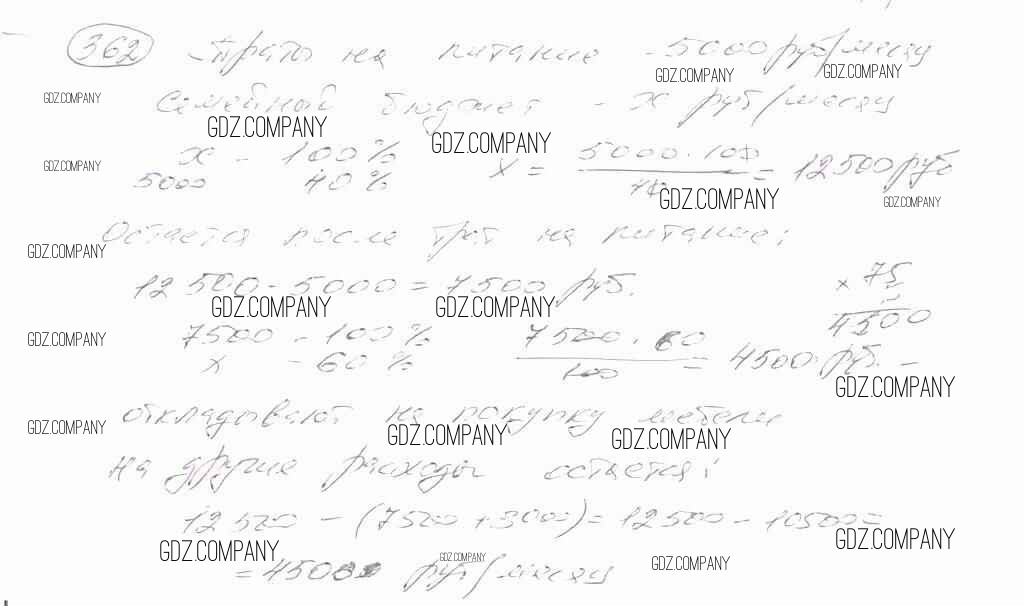 362 Трата на питание - 5000 руб/месяц
GDZ.COMPANY GDZ.COMPANY
GDZ.COMPANY Семейный бюджет - x руб/месяц
GDZ.COMPANY GDZ.COMPANY
x - 100% X = 5000 · 100 / 40 = 12500 руб
GDZ.COMPANY 5000 40%
GDZ.COMPANY GDZ.COMPANY
Остается после трат на питание:
GDZ.COMPANY
12 500 - 5000 = 7500 руб. × 75
GDZ.COMPANY GDZ.COMPANY
4500
7500 - 100% 7500 · 60 / 100 = 4500 руб. -
GDZ.COMPANY x - 60%
GDZ.COMPANY
откладывают на покупку мебели
GDZ.COMPANY GDZ.COMPANY GDZ.COMPANY
на другие расходы остается:
12 500 - (7500 + 3000) = 12500 - 10500 =
GDZ.COMPANY GDZ.COMPANY
= 4500 руб/месяц
GDZ.COMPANY GDZ.COMPANY